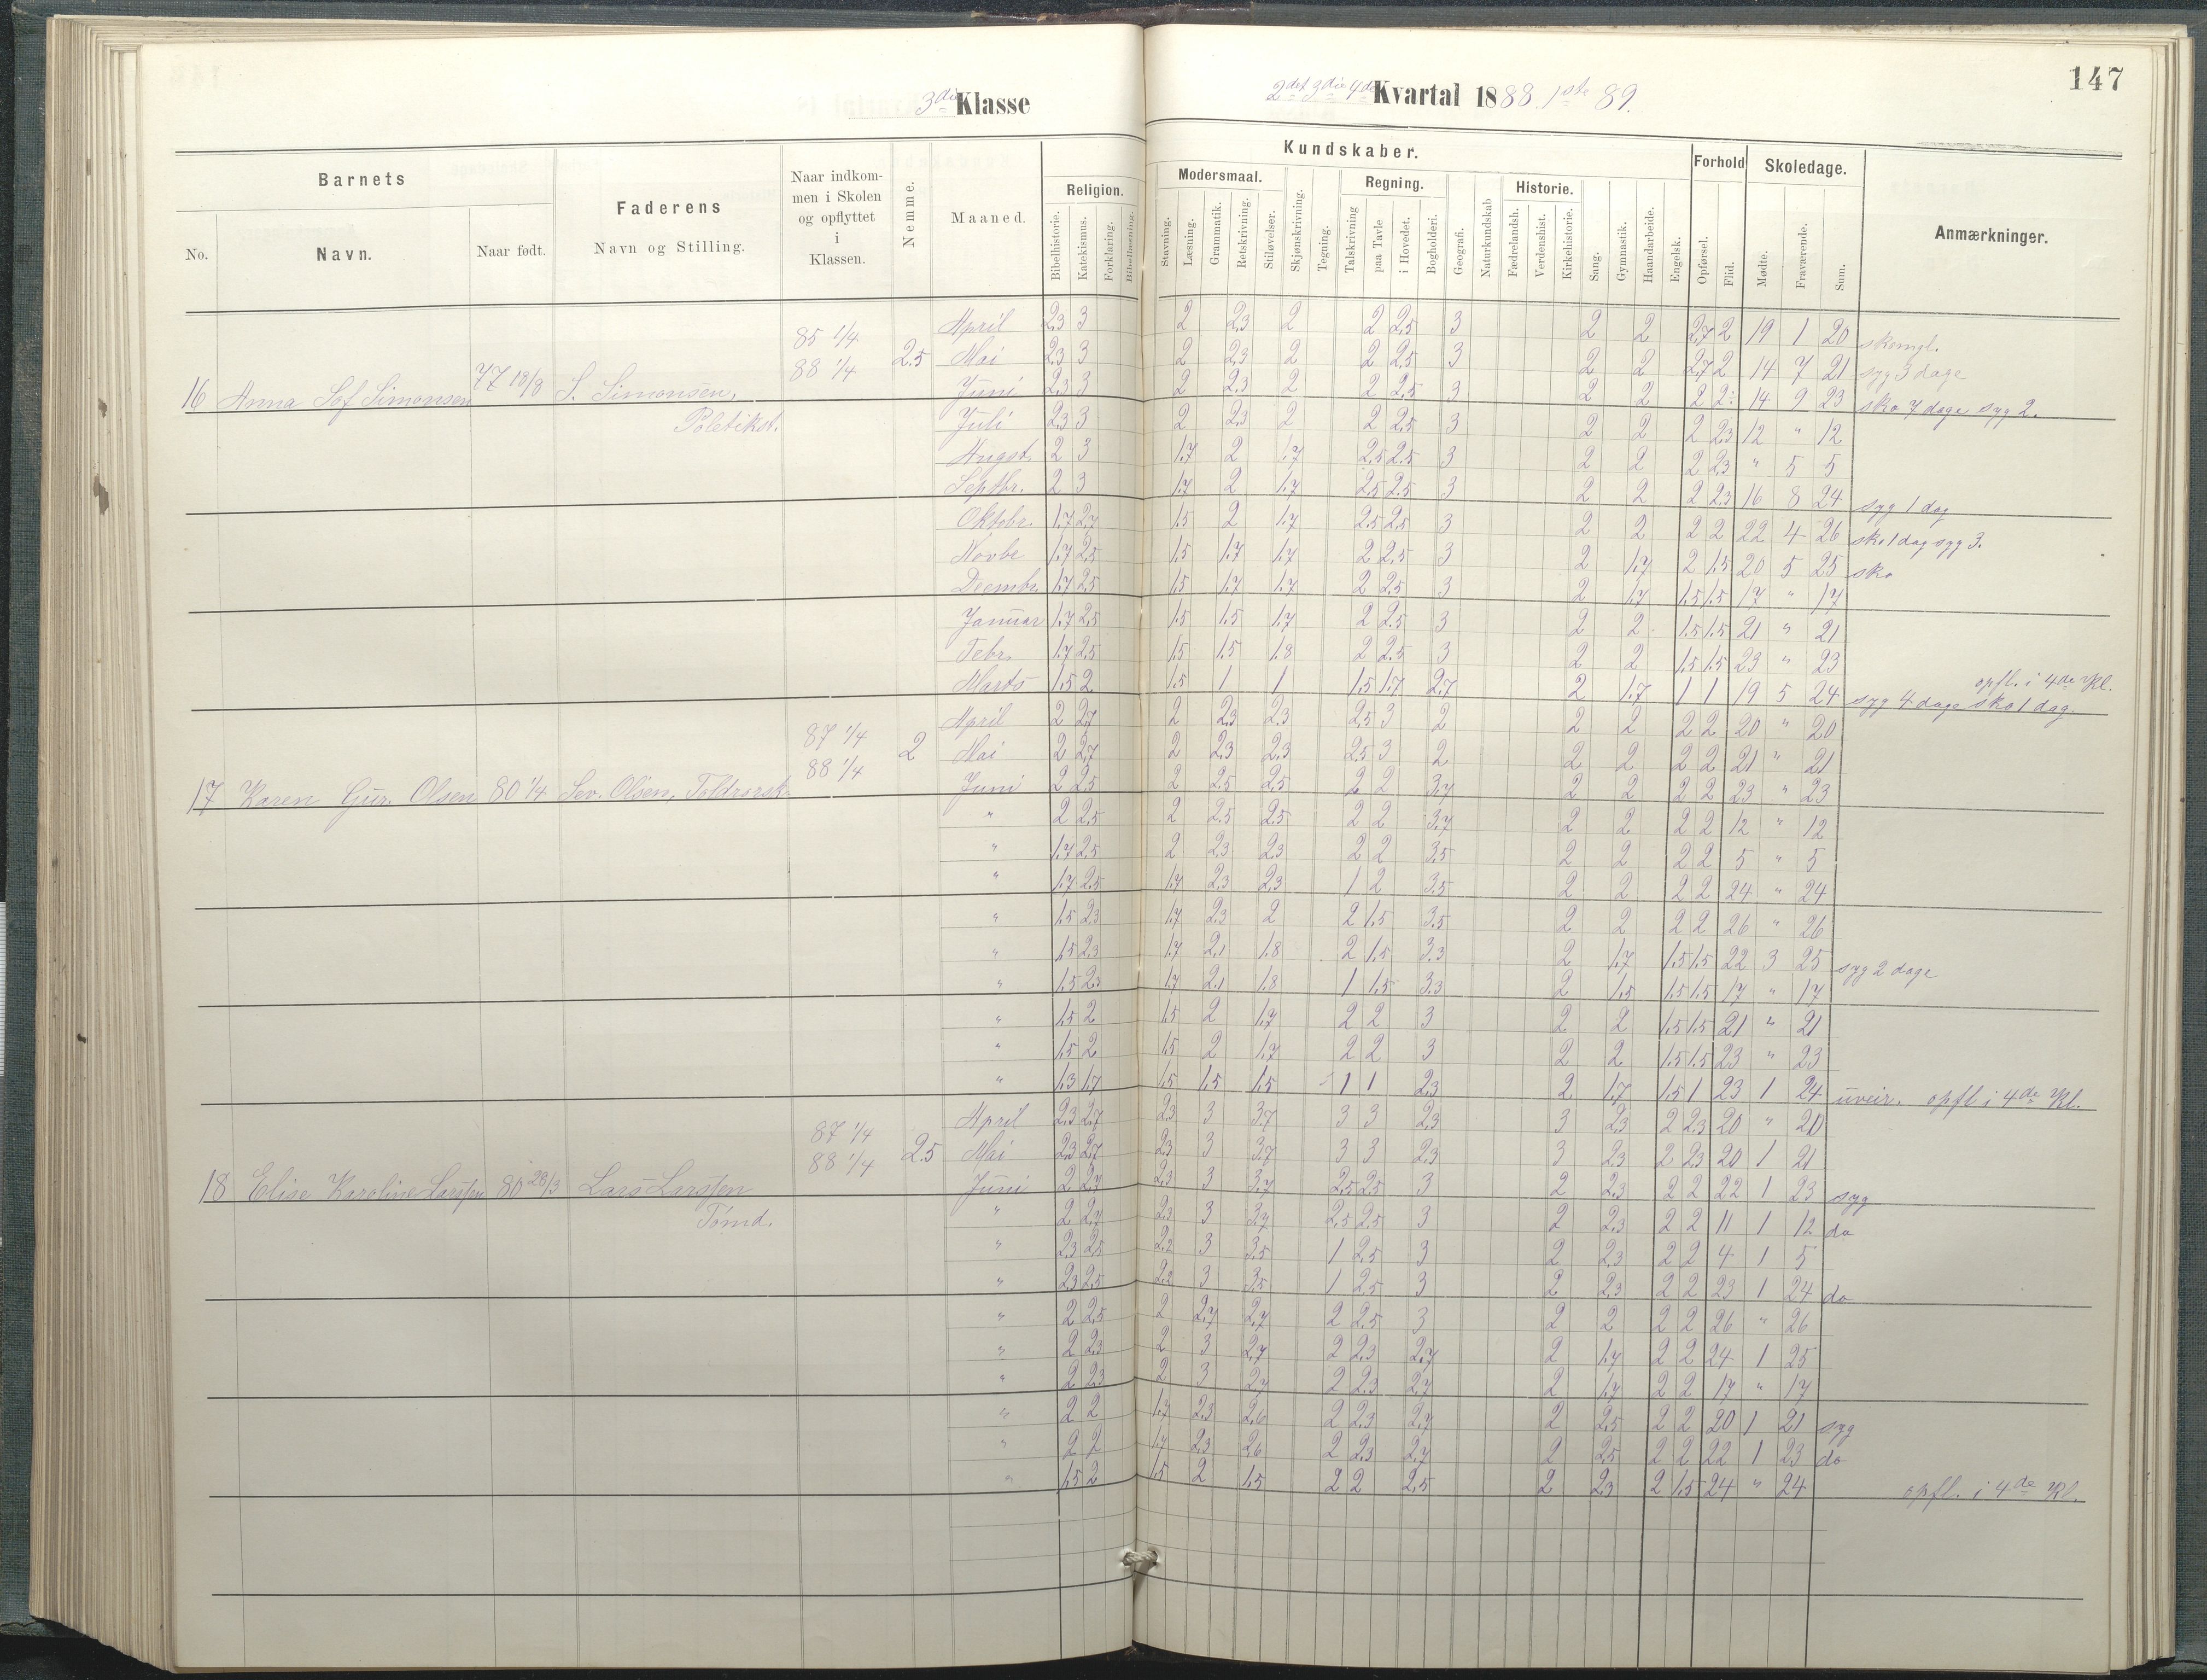 147
3die Klasse
2det 3die 4de Kvartal 1888. 1ste 89.
Barnets
No.
Navn.
Naar født.
Faderens
Navn og Stilling.
Naar indkom-
men i Skolen
og opflyttet
i
Klassen.
Nemme.
Maaned.
Kundskaber.
Religion.
Bibelhistorie.
Katekismus.
Forklaring.
Bibellæsning.
Modersmaal.
Stavning.
Læsning.
Grammatik.
Retskrivning.
Stiløvelser.
Skjønskrivning.
Tegning.
Regning.
Talskrivning
paa Tavle
i Hovedet.
Bogholderi.
Geografi.
Naturkundskab
Historie.
Fædrelandsh.
Verdenshist.
Kirkehistorie.
Sang.
Gymnastik.
Haandarbeide.
Engelsk.
Forhold
Opførsel.
Flid.
Skoledage.
Mødte.
Fraværende.
Sum.
Anmærkninger.
16 Anna Sof Simonsen 77 18/8 S. Simonsen, Poletikst. 85 1/4 88 1/4 2.5
April 2.3 3 2 2.3 2 2 2.5 3 2 2 2.7 2 19 1 20 skomgl.
Mai 2.3 3 2 2.3 2 2 2.5 3 2 2 2.7 2 14 7 21 syg 3 dage
Juni 2.3 3 2 2.3 2 2 2.5 3 2 2 2 2 14 9 23 sko 7 dage syg 2.
Juli 2.3 3 2 2.3 2 2 2.5 3 2 2 2 2.3 12 " 12
Augst 2 3 1.7 2 1.7 2.5 2.5 3 2 2 2 2.3 " 5 5
Septbr. 2 3 1.7 2 1.7 2.5 2.5 3 2 2 2 2.3 16 8 24 syg 1 dag
Oktobr. 1.7 2.7 1.5 2 1.7 2.5 2.5 3 2 2 2 2 22 4 26 sko 1 dag syg 3.
Novbe 1.7 2.5 1.5 1.7 1.7 2 2.5 3 2 1.7 2 1.5 20 5 25 sko
Decmbr 1.7 2.5 1.5 1.7 1.7 2 2.5 3 2 1.7 1.5 1.5 17 " 17
Januar 1.7 2.5 1.5 1.5 1.7 2 2.5 3 2 2 1.5 1.5 21 " 21
Febr. 1.7 2.5 1.5 1.5 1.8 2 2.5 3 2 2 1.5 1.5 23 " 23
Marts 1.5 2 1.5 1 1 1.5 1.7 2.7 2 1.7 1 1 19 5 24 syg 4 dage sko 1 dag. opfl. i 4de Kl.
17 Karen Gur. Olsen 80 1/4 Sev. Olsen, Toldrorsk. 87 1/4 88 1/4 2
April 2 2.7 2 2.3 2.3 2.5 3 2 2 2 2 2 20 " 20
Mai 2 2.7 2 2.3 2.3 2.5 3 2 2 2 2 2 21 " 21
Juni 2 2.5 2 2.5 2.5 2 2 3.7 2 2 2 2 23 " 23
" 2 2.5 2 2.5 2.5 2 2 3.7 2 2 2 2 12 " 12
" 1.7 2.5 2 2.3 2.3 2 2 3.5 2 2 2 2 5 " 5
" 1.7 2.5 1.7 2.3 2.3 1 2 3.5 2 2 2 2 24 " 24
" 1.5 2.3 1.7 2.3 2 2 1.5 3.5 2 2 2 2 26 " 26
" 1.5 2.3 1.7 2.1 1.8 2 1.5 3.3 2 1.7 1.5 1.5 22 3 25 syg 2 dage
" 1.5 2.3 1.7 2.1 1.8 1 1.5 3.3 2 1.5 1.5 1.5 17 " 17
" 1.5 2 1.5 2 1.7 2 2 3 2 2 1.5 1.5 21 " 21
" 1.5 2 1.5 2 1.7 2 2 3 2 2 1.5 1.5 23 " 23
" 1.3 1.7 1.5 1.5 1.5 1 1 2.3 2 1.7 1.5 1 23 1 24 uveir. opfl i 4de Kl.
18 Elise Karoline Larssen 80 28/3 Lars Larssen Tømd. 87 1/4 88 1/4 2.5
April 2.3 2.7 2.3 3 3.7 3 3 2.3 3 2.3 2 2.3 20 " 20
Mai 2.3 2.7 2.3 3 3.7 3 3 2.3 3 2.3 2 2.3 20 1 21
Juni 2 2.7 2.3 3 3.7 2.5 2.5 3 2 2.3 2 2 22 1 23 syg
" 2 2.7 2.3 3 3.7 2.5 2.5 3 2 2.3 2 2 11 1 12 do
" 2.3 2.5 2.2 3 3.5 1 2.5 3 2 2.3 2 2 4 1 5
" 2.3 2.5 2.2 3 3.5 1 2.5 3 2 2.3 2 2 23 1 24 do
" 2 2.5 2 2.7 2.7 2 2.5 3 2 2 2 2 26 " 26
" 2 2.3 2 3 2.7 2 2.3 2.7 2 1.7 2 2 24 1 25
" 2 2.3 2 3 2.7 2 2.3 2.7 2 1.7 2 2 17 " 17
" 2 2 1.7 2.3 2.6 2 2.3 2.7 2 2.5 2 2 20 1 21 syg
" 2 2 1.7 2.3 2.6 2 2.3 2.7 2 2.5 2 2 22 1 23 do
" 1.5 2 1.5 2 1.5 2 2 2.5 2 2.3 2 1.5 24 " 24 opfl. i 4de Kl.